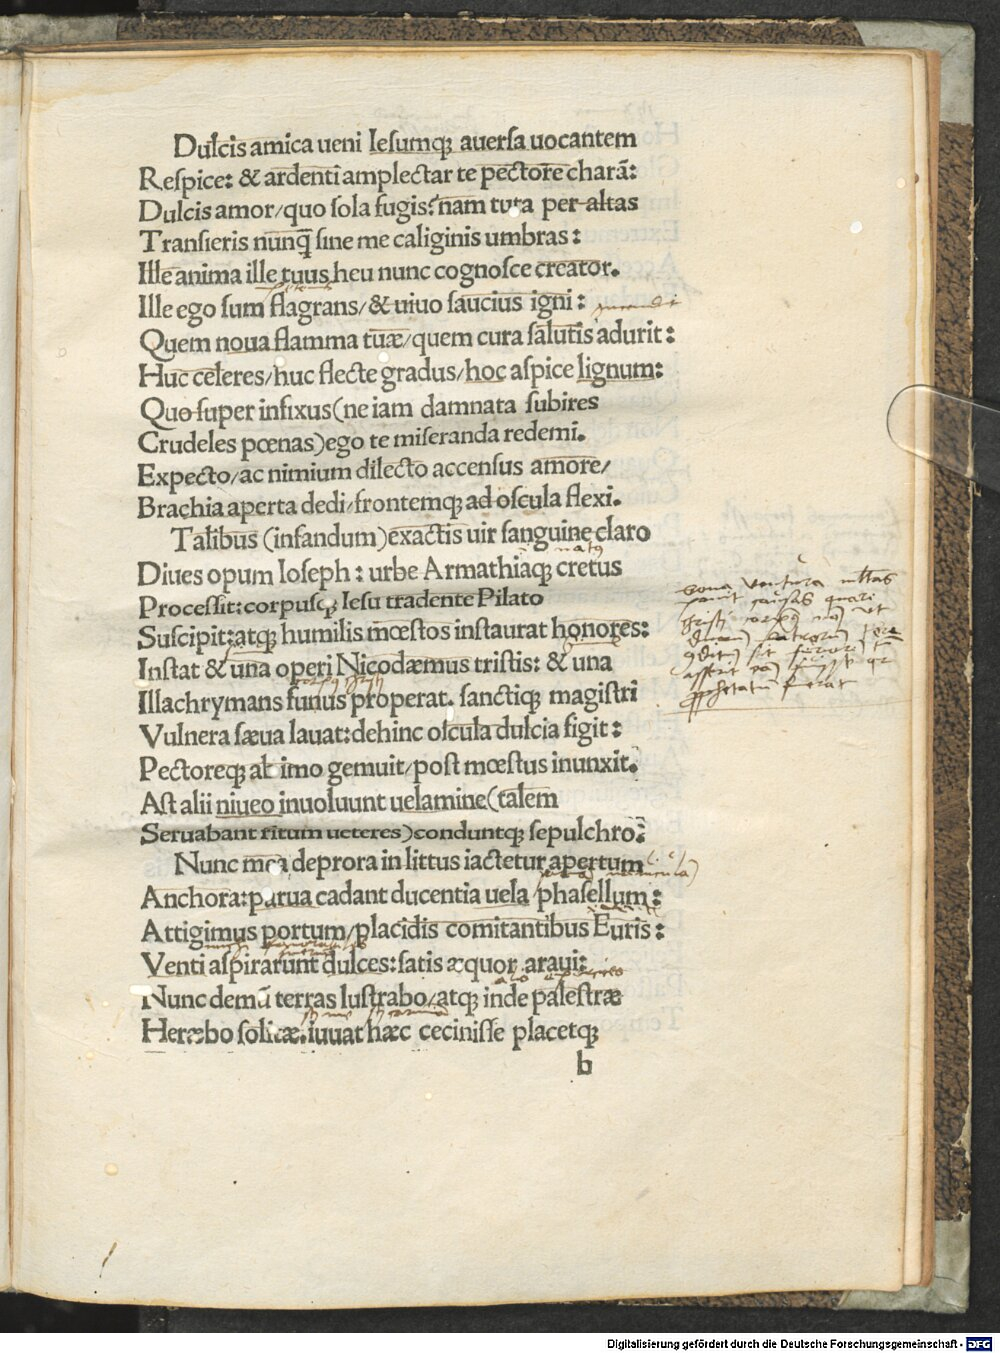 Dulcis amica ueni Iesumqꝫ auerſa uocantem
Reſpice: & ardenti amplectar te pectore charā:
Dulcis amor/quo ſola fugis? nam tuta per altas
Tranſieris nunꝗ̃ ſine me caliginis umbras:
Ille anima ille tuus heu nunc cognoſce creator.
Ille ego ſum flagrans/& uiuo ſaucius igni:
Quem noua flamma tuæ/quem cura ſalutis adurit:
Huc celeres/huc flecte gradus/hoc aſpice lignum:
Quo ſuper infixus(ne iam damnata ſubires
Crudeles pœnas)ego te miſeranda redemi.
Expecto/ac nimium dilecto accenſus amore/
Brachia aperta dedi/frontemqꝫ ad oſcula flexi.
Talibus (infandum)exactis uir ſanguine claro
natus
Diues opum Ioſeph: urbe Armathiaqꝫ cretus
Proceſſit: corpuſqꝫ Ieſu tradente Pilato
Suſcipit: atqꝫ humilis mœſtos inſtaurat honores:
Inſtat & una operi Nicodæmus triſtis: & una
Illachrymans funus properat. ſanctiqꝫ magiſtri
Vulnera ſæua lauat: dehinc oſcula dulcia figit:
Pectoreqꝫ ab imo gemuit/poſt mœſtus inunxit.
Aſt alii niueo inuoluunt uelamine(talem
Seruabant ritum ueteres)conduntqꝫ ſepulchro:
Nunc mea deprora in littus iactetur apertum
Anchora: parua cadant ducentia uela phaſellum:
Attigimus portum/placidis comitantibus Euris:
Venti aſpirarunt dulces: ſatis æquor araui:
Nunc demū terras luſtrabo/atqꝫ inde paleſtræ
Heræbo ſolitæ. iuuat hæc ceciniſſe placetqꝫ
b
Digitalisierung gefördert durch die Deutsche Forschungsgemeinschaft - DFG